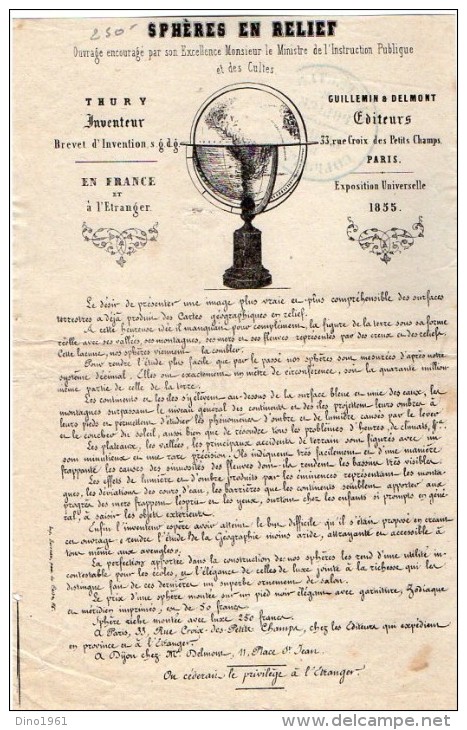 250
SPHÈRES EN RELIEF
Ouvrage encouragé par son Excellence Monsieur le Ministre de l'Instruction Publique
et des Cultes.
THURY
Inventeur
Brevet d'Invention s.g.d.g.
EN FRANCE
ET
à l'Etranger.
GUILLEMIN & DELMONT
Editeurs
33, rue Croix des Petits Champs.
PARIS.
Exposition Universelle
1855.
Le désir de présenter une image plus vraie et plus compréhensible des surfaces
terrestres a déjà produit des Cartes géographiques en relief.
A cette heureuse idée il manquait pour complément, la figure de la terre sous sa forme
réelle avec ses vallées, ses montagnes, ses mers et ses fleuves représentés par des creux et des reliefs.
Cette lacune, nos sphères viennent la combler.
Pour rendre l'étude plus facile que par le passé nos sphères sont mesurées d'après notre
système décimal. Elles ont exactement un mètre de circonférence, soit la quarante million
même partie de celle de la terre.
Les continents et les îles s'élèvent au-dessus de la surface bleue et unie des eaux, les
montagnes surpassant le niveau général des continents et des îles projettent leurs ombres à
leurs pieds et permettent d'étudier les phénomènes d'ombre et de lumière causés par le lever
et le coucher du soleil, aussi bien que de résoudre tous les problèmes d'heures, de climats, &a.
Les plateaux, les vallées, les principaux accidents de terrain sont figurés avec un
soin minutieux et une rare précision. Ils indiquent très facilement et d'une manière
frappante les causes des sinuosités des fleuves dont ils rendent les bassins très visibles.
Les effets de lumière et d'ombre produits par les éminences représentant les monta-
gnes, les déviations des cours d'eau, les barrières que les continents semblent apporter aux
progrès des mers frappent l'esprit et les yeux, surtout chez les enfants si prompts en géné-
ral, à saisir les objets extérieurs.
Enfin l'inventeur espère avoir atteint le but difficile qu'il s'était proposé en créant
cet ouvrage: rendre l'étude de la Géographie moins aride, attrayante et accessible à
tous même aux aveugles.
La perfection apportée dans la construction de nos sphères les rend d'une utilité in-
contestable pour les écoles, et l'élégance de celles de luxe jointe à la richesse qui les
distingue font de ces dernières un superbe ornement de salon.
Le prix d'une sphère montée sur un pied noir élégant avec garniture, Zodiaque
et méridien imprimés, est de 50 francs.
Sphère riche montée avec luxe 250 francs.
A Paris, 33, Rue Croix-des-Petits Champs, chez les Editeurs qui expédient
en province et à l'Etranger.
A Dijon chez Mr. Delmont, 11, Place St Jean.
On céderait le privilège à l'Etranger.
Dino1961